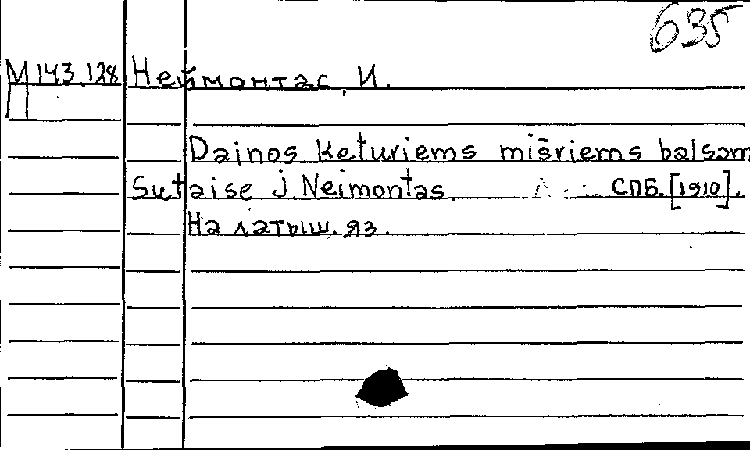 635
М 143.128 Неймонтас, И.
П
Dainos keturiems mišriems balsam
Sutaise J. Neimontas. СПБ. [1910].
На латыш. яз.